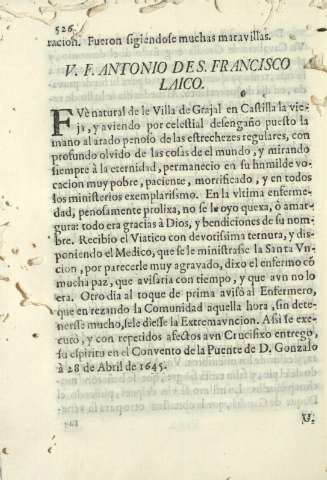 526
racion. Fueron sigiendose muchas maravillas.
V. F. ANTONIO DE S. FRANCISCO
LAICO.
FVè natural de le Villa de Grajal en Castilla la vie-
ja, y aviendo por celestial desengaño puesto la
mano al arado penoso de las estrechezes regulares, con
profundo olvido de las cosas de el mundo, y mirando
siempre à la eternidad, permanecio en su humilde vo-
cacion muy pobre, paciente, mortificado, y en todos
los ministerios exemplarissimo. En la vltima enferme-
dad, penosamente prolixa, no se le oyo quexa, ò amar-
gura: todo era gracias à Dios, y bendiciones de su nom-
bre. Recibio el Viatico con devotissima ternura, y dis-
poniendo el Medico, que se le ministrasse la Santa Vn-
cion, por parecerle muy agravado, dixo el enfermo cõ
mucha paz, que avisaria con tiempo, y que avn no lo
era. Otro dia al toque de prima avisò al Enfermero,
que en rezando la Comunidad aquella hora, sin dete-
nersse mucho, sele diesse la Extremavncion. Assi se exe-
cutò, y con repetidos afectos avn Crucifixo entregò,
su espiritu en el Convento de la Puente de D. Gonzalo
à 28 de Abril de 1645.